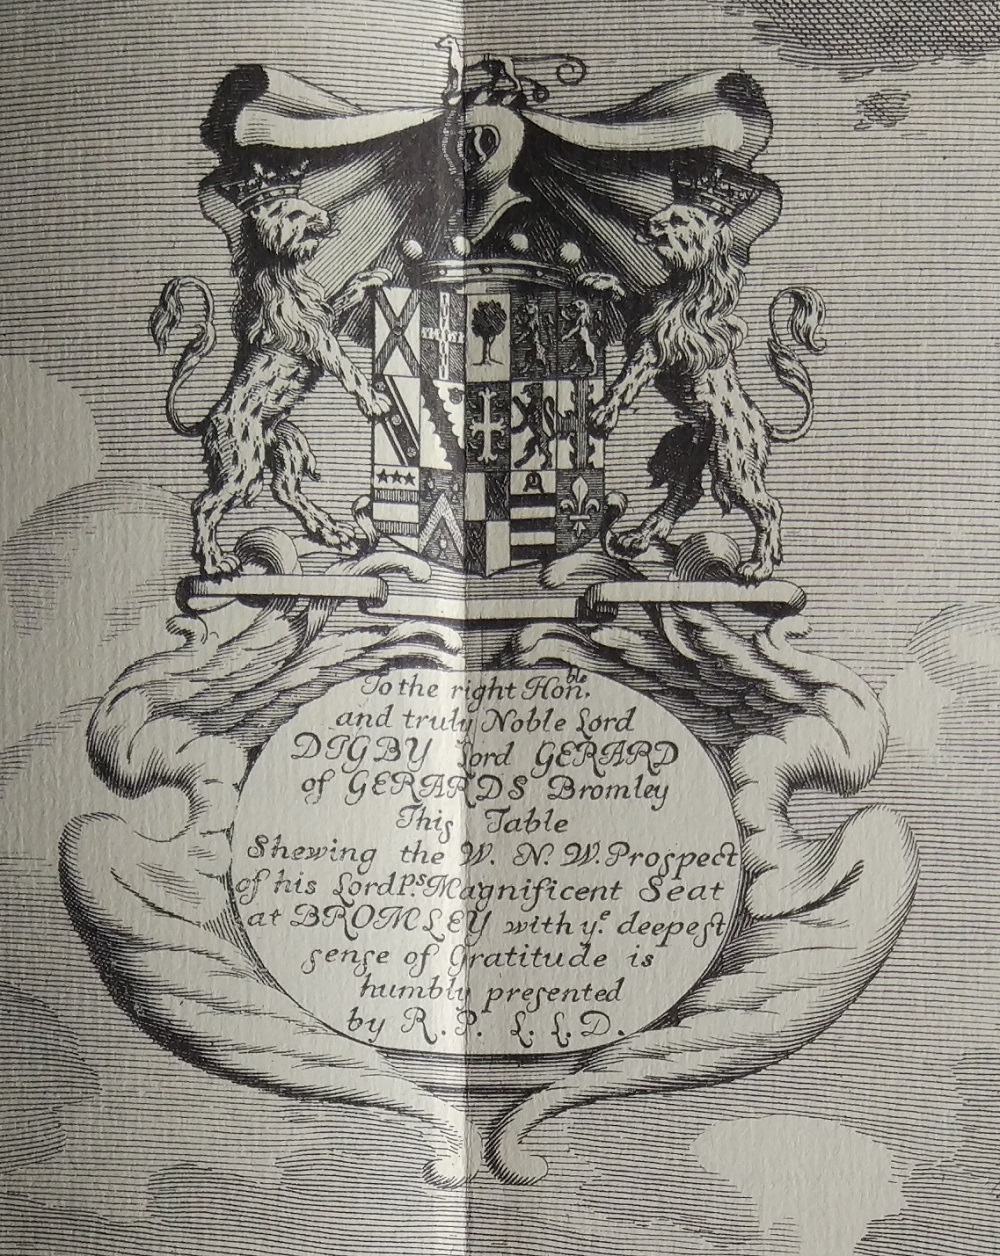 To the right Hon.ble
and truly Noble Lord
DIGBY Lord GERARD
of GERARDS Bromley
This Table
Shewing the W. N. W. Prospect
of his Lordps Magnificent Seat
at BROMLEY with ye. deepest
sense of Gratitude is
humbly presented
by R. P. L. L. D.